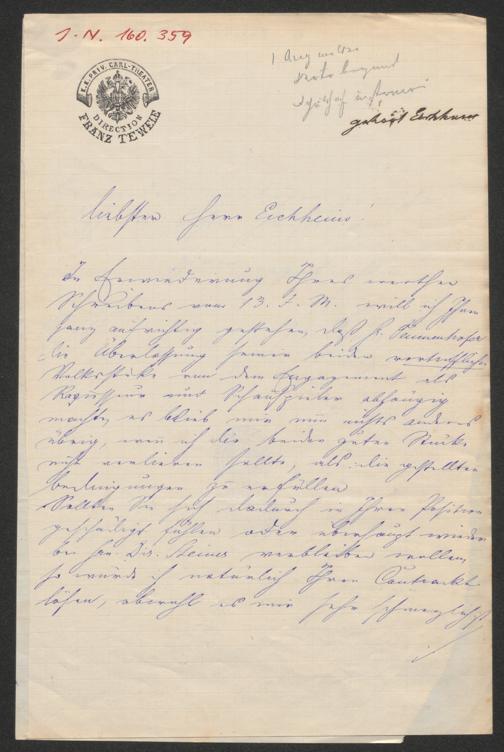 J. N. 160.359
K. K. PRIV. CARL-THEATER
DIRECTION
FRANZ TEWELE
gehört Eichheim
liebster Herr Eichheim!
In Erwiederung Ihres werthen
Schreibens vom 13. d. M. will ich Ihnen
ganz aufrichtig gestehen, daß H.
die Überlaßung seiner beiden vortrefflichen
Volksstücke von dem Engagement als
Regisseur und Schauspieler abhängig
machte, es blieb mir nun nichts anderes
übrig, wenn ich die beiden guten Stücke
nicht verlieren sollte, als die gestellten
Bedingungen zu erfüllen
Sollten Sie sich dadurch in Ihrer Position
geschädigt fühlen oder überhaupt wieder
bei Hrn. Dir. Steiner verbleiben wollen,
so würde ich natürlich Ihren Contrackt
lösen, obwohl es mir sehr schmerzlich